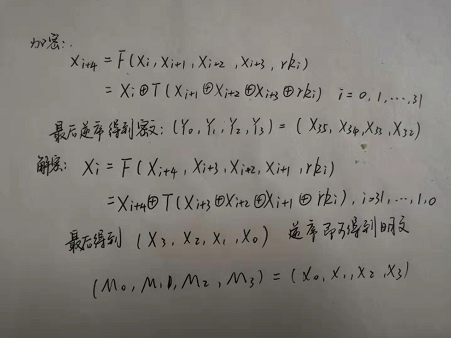 加密:
X_{i+4} = F(X_i, X_{i+1}, X_{i+2}, X_{i+3}, rk_i)
= X_i⊕T(X_{i+1}⊕X_{i+2}⊕X_{i+3}⊕rk_i) i=0,1,…,31
最后逆序得到密文: (Y_0, Y_1, Y_2, Y_3) = (X_{35}, X_{34}, X_{33}, X_{32})
解密: X_i = F(X_{i+4}, X_{i+3}, X_{i+2}, X_{i+1}, rk_i)
=X_{i+4}⊕T(X_{i+3}⊕X_{i+2}⊕X_{i+1}⊕rk_i), i=31,…,1,0
最后得到 (X_3, X_2, X_1, X_0) 逆序即可得到明文
(M_0, M_1, M_2, M_3) = (X_0, X_1, X_2, X_3)